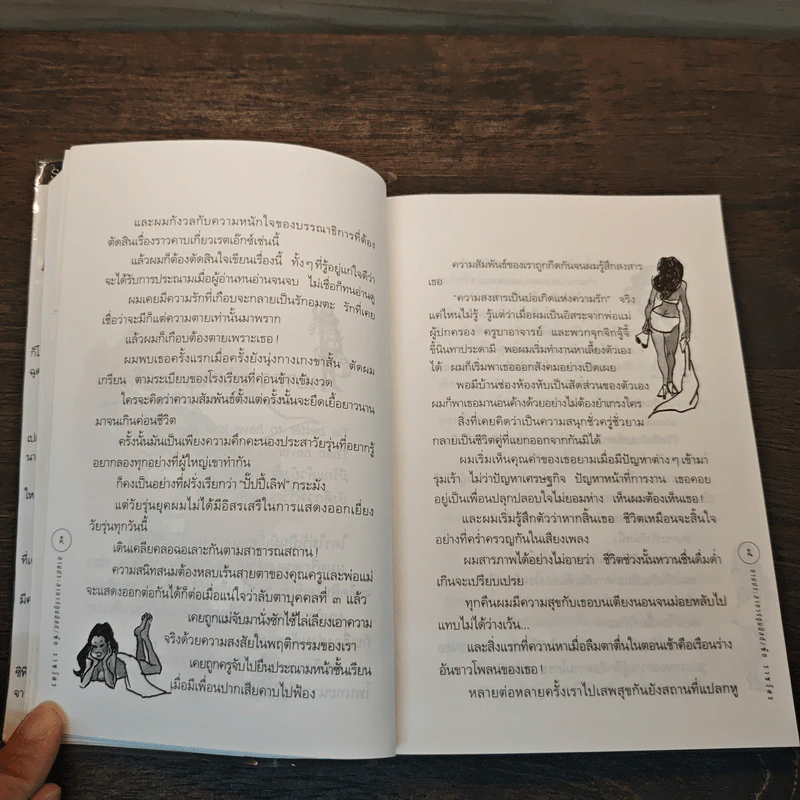 และผมกังวลกับความหนักใจของบรรณาธิการที่ต้อง
ตัดสินเรื่องราวคาบเกี่ยวเรตเอ๊กซ์เช่นนี้
แล้วผมก็ต้องตัดสินใจเขียนเรื่องนี้ ทั้งๆ ที่รู้อยู่แก่ใจดีว่า
จะได้รับการประณามเมื่อผู้อ่านทนอ่านจนจบ ไม่เชื่อก็ทนอ่านดู
ผมเคยมีความรักที่เกือบจะกลายเป็นรักอมตะ รักที่เคย
เชื่อว่าจะมีก็แต่ความตายเท่านั้นมาพราก
แล้วผมก็เกือบต้องตายเพราะเธอ !
ผมพบเธอครั้งแรกเมื่อครั้งยังนุ่งกางเกงขาสั้น ตัดผม
เกรียน ตามระเบียบของโรงเรียนที่ค่อนข้างเข้มงวด
ใครจะคิดว่าความสัมพันธ์ตั้งแต่ครั้งนั้นจะยืดเยื้อยาวนาน
มาจนเกินค่อนชีวิต
ครั้งนั้นมันเป็นเพียงความคึกคะนองประสาวัยรุ่นที่อยากรู้
อยากลองทุกอย่างที่ผู้ใหญ่เขาทำกัน
ก็คงเป็นอย่างที่ฝรั่งเรียกว่า “ปั๊ปปี้เลิฟ” กระมัง
แต่วัยรุ่นยุคผมไม่ได้มีอิสรเสรีในการแสดงออกเยี่ยง
วัยรุ่นทุกวันนี้
เดินเคลียคลอฉอเลาะกันตามสาธารณสถาน !
ความสนิทสนมต้องหลบเร้นสายตาของคุณครูและพ่อแม่
จะแสดงออกต่อกันได้ก็ต่อเมื่อแน่ใจว่าลับตาบุคคลที่ ๓ แล้ว
เคยถูกแม่จับมานั่งซักไซ้ไล่เลียงเอาความ
จริงด้วยความสงสัยในพฤติกรรมของเรา
เคยถูกครูจับไปยืนประณามหน้าชั้นเรียน
เมื่อมีเพื่อนปากเสียคาบไปฟ้อง
ความสัมพันธ์ของเราถูกกีดกันจนผมรู้สึกสงสาร
เธอ
“ความสงสารเป็นบ่อเกิดแห่งความรัก” จริง
แค่ไหนไม่รู้ รู้แต่ว่าเมื่อผมเป็นอิสระจากพ่อแม่
ผู้ปกครอง ครูบาอาจารย์ และพวกจุกจิกจู้จี้
ขี้นินทาประดามี พอผมเริ่มทำงานหาเลี้ยงตัวเอง
ได้ ผมก็เริ่มพาเธอออกสังคมอย่างเปิดเผย
พอมีบ้านช่องห้องหับเป็นสัดส่วนของตัวเอง
ผมก็พาเธอมานอนค้างด้วยอย่างไม่ต้องยำเกรงใคร
สิ่งที่เคยคิดว่าเป็นความสนุกชั่วครู่ชั่วยาม
กลายเป็นชีวิตคู่ที่แยกออกจากกันมิได้
ผมเริ่มเห็นคุณค่าของเธอยามเมื่อมีปัญหาต่างๆ เข้ามา
รุมเร้า ไม่ว่าปัญหาเศรษฐกิจ ปัญหาหน้าที่การงาน เธอคอย
อยู่เป็นเพื่อนปลุกปลอบใจไม่ยอมห่าง เห็นผมต้องเห็นเธอ !
และผมเริ่มรู้สึกตัวว่าหากสิ้นเธอ ชีวิตเหมือนจะสิ้นใจ
อย่างที่คร่ำครวญกันในเสียงเพลง
ผมสารภาพได้อย่างไม่อายว่า ชีวิตช่วงนั้นหวานชื่นดื่มด่ำ
เกินจะเปรียบเปรย
ทุกคืนผมมีความสุขกับเธอบนเตียงนอนจนม่อยหลับไป
แทบไม่ได้ว่างเว้น...
และสิ่งแรกที่ควานหาเมื่อลืมตาตื่นในตอนเช้าคือเรือนร่าง
อันขาวโพลนของเธอ !
หลายต่อหลายครั้งเราไปเสพสุขกันยังสถานที่แปลกหู